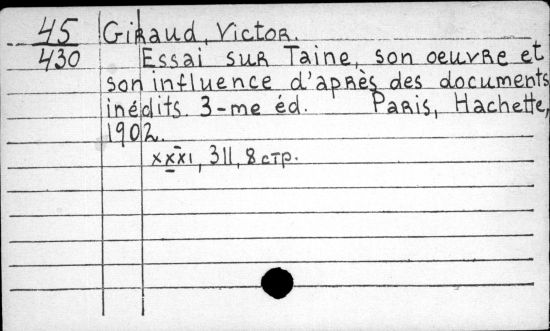 45 Giraud, Victor.
430 Essai sur Taine, son oeuvre et
son influence d'après des documents
inédits. 3-me éd. Paris, Hachette,
1902.
xxxi, 311, 8 стр.